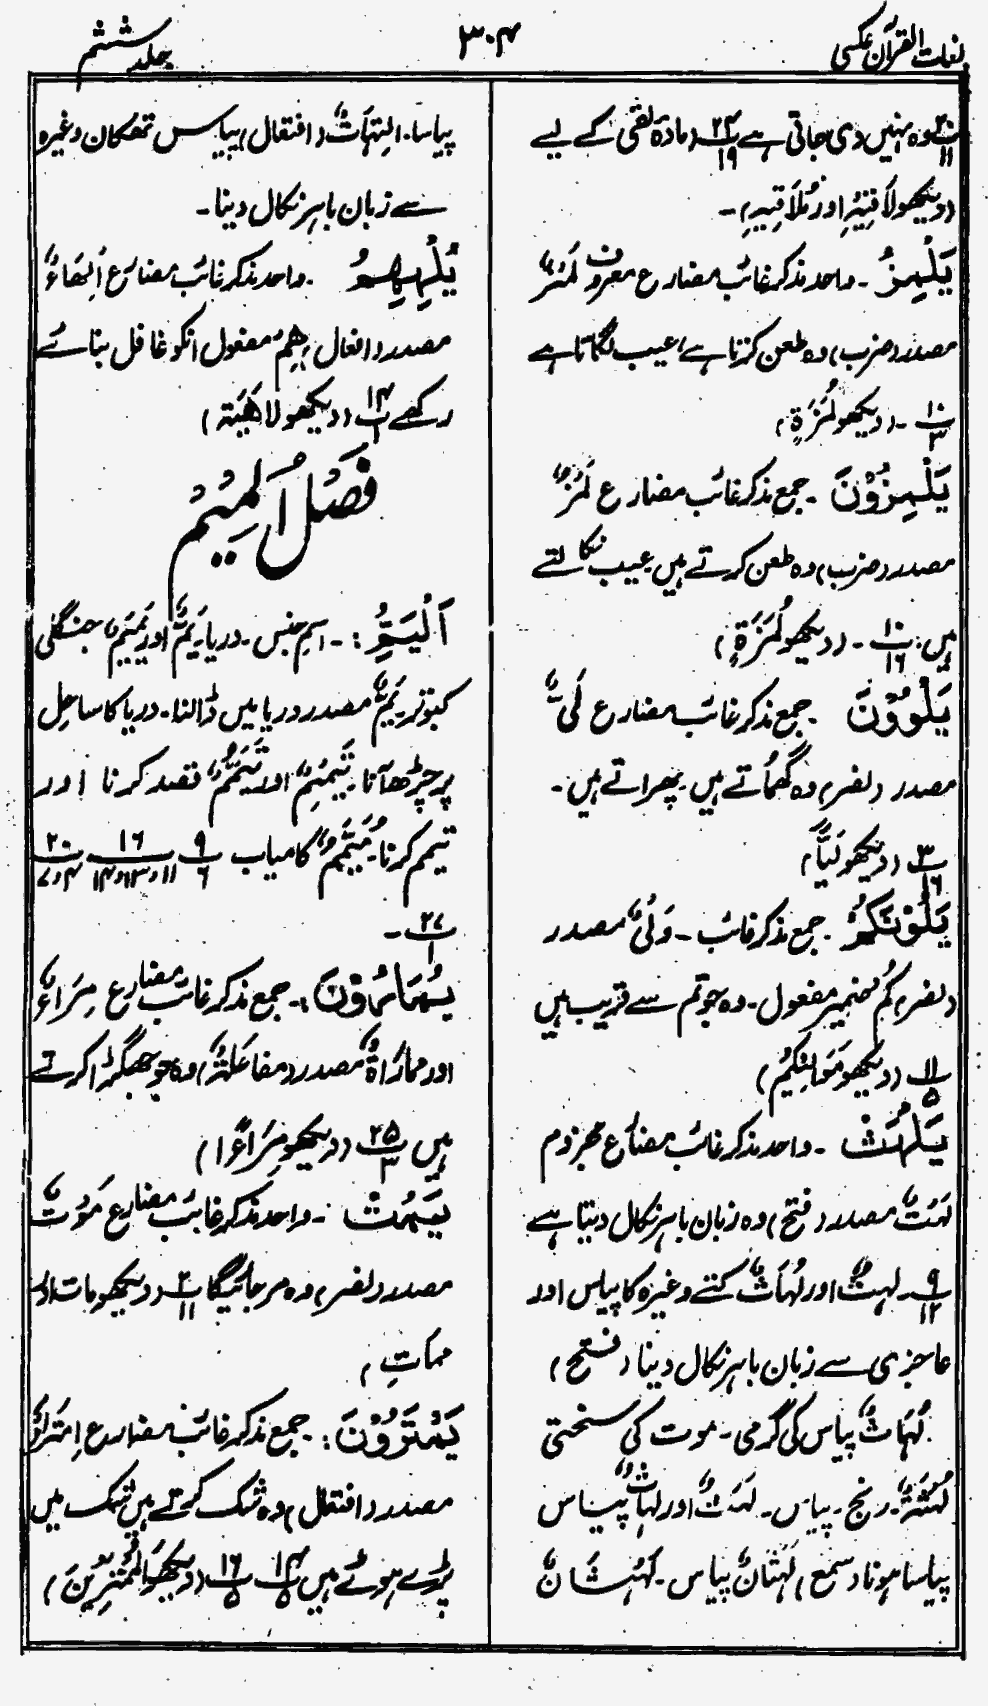 لغات القرآن عکسی
۳۰۴
جلد ششم
۲۰/۱۱ وہ نہیں دی جاتی ہے ۲۴/۱۹ (مادۃ لقی کے لیے
(دیکھو لَاقِیْہِ اور مُلَاقِیْہِ) ۔
یَلْمِزُ ۔ واحد مذکر غائب مضارع معروف لَمْزٌ
مصدر (ضرب) وہ طعن کرتا ہے، عیب لگاتا ہے
۱۰/۳ ۔ (دیکھو لُمَزَۃٍ)
یَلْمِزُوْنَ ۔ جمع مذکر غائب مضارع لَمْزٌ
مصدر (ضرب) وہ طعن کرتے ہیں عیب نکالتے
ہیں: ۱۰/۱۶ ۔ (دیکھو لُمَزَۃٍ)
یَلْوٗوْنَ ۔ جمع مذکر غائب مضارع لَیٌّ
مصدر (نصر) وہ گھماتے ہیں ۔ پھراتے ہیں ۔
۳/۱۶ (دیکھو لَیًّا)
یَلُوْنَکُمْ ۔ جمع مذکر غائب ۔ وَلْیٌ مصدر
(نصر) کُمْ ضمیر مفعول ۔ وہ جو تم سے قریب ہیں
۱۱/۵ (دیکھو مَوَالِیْکُمْ)
یَلْهَثْ ۔ واحد مذکر غائب مضارع مجزوم
لَہْثٌ مصدر (فتح) وہ زبان باہر نکال دیتا ہے
۹/۱۲ ۔ لہثٌ اور لُہَاثٌ کتے وغیرہ کا پیاس اور
عاجزی سے زبان باہر نکال دینا (فتح)
لُہَاثٌ پیاس کی گرمی ۔ موت کی سختی
لُہْثَۃٌ ۔ رنج ۔ پیاس ۔ لَہَثٌ اور لہاثٌ پیاس
پیاسا ہونا (سمع) لَہْثَانٌ پیاس ۔ لَہْثَانٌ
پیاسا ۔ اِلْتِہَاثٌ (افتعال) پیاس تھکان وغیرہ
سے زبان باہر نکال دینا ۔
یُلْهِهِمُ ۔ واحد مذکر غائب مضارع اِلْہَاءٌ
مصدر (افعال) ہِمْ مفعول انکو غافل بنائے
رکھے ۱۴/۱ (دیکھو لَاهِیَۃ)
فَصْلُ الْمِیْمِ
اَلْیَمِّ : ۔ اسم جنس ۔ دریا ۔ یَمٌّ اور یَمَمٌ جنگلی
کبوتر ۔ یَمٌّ مصدر دریا میں ڈالنا ۔ دریا کا ساحل
پر چڑھ آنا ۔ تَیْمِیْمٌ اور تَیَمُّمٌ قصد کرنا اور
تیمم کرنا ۔ مُیَمَّمٌ کامیاب ۹/۶ ۱۶/۱۱و۱۳و۱۴ ۲۰/۴و۷
۲۷/۱ ۔
یُمَارُوْنَ : ۔ جمع مذکر غائب مضارع مِرَاءٌ
اور مماراۃٌ مصدر (مفاعَلَۃٌ) وہ جو جھگڑا کرتے
ہیں ۲۵/۳ (دیکھو مِرَاءً ا)
یَمُتْ ۔ واحد مذکر غائب مضارع مَوْتٌ
مصدر (نصر) وہ مر جائیگا ۲/۱۱ (دیکھو مات اور
مماتِ)
یَمْتَرُوْنَ : ۔ جمع مذکر غائب مضارع اِمْتِرَاءٌ
مصدر (افتعال) وہ شک کرتے ہیں شک میں
پڑے ہوئے ہیں ۱۴/۵ ۱۶/۵ (دیکھو الْمُمْتَرِیْنَ)